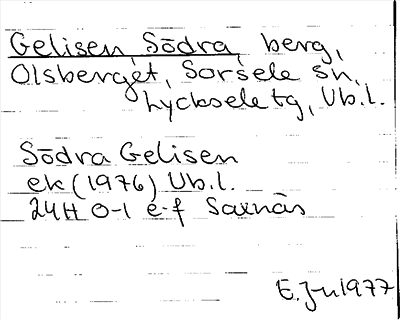 Gelisen, Södra, berg,
Olsberget, Sorsele sn,
Lycksele tg, Vb.l.
Södra Gelisen
ek (1976) Vb.l.
24H 0-1 e-f Saxnäs
E.J-n 1977